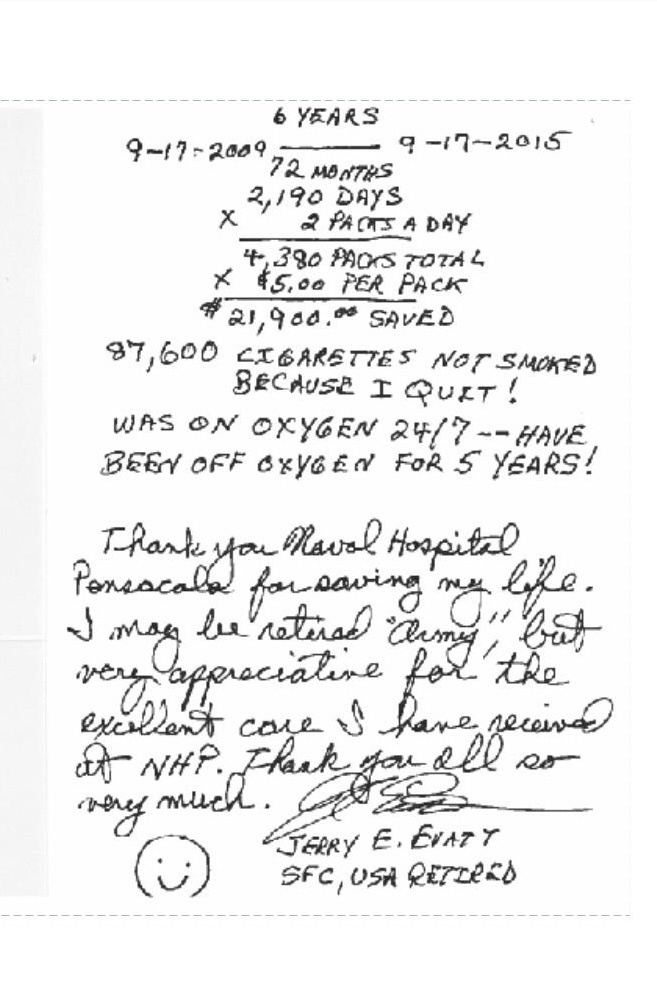 6 YEARS
9-17-2009 ——— 9-17-2015
72 MONTHS
2,190 DAYS
X 2 PACKS A DAY
4,380 PACKS TOTAL
X $5.00 PER PACK
$21,900.00 SAVED
87,600 CIGARETTES NOT SMOKED
BECAUSE I QUIT!
WAS ON OXYGEN 24/7 -- HAVE
BEEN OFF OXYGEN FOR 5 YEARS!
Thank you Naval Hospital
Pensacola for saving my life.
I may be retired "Army", but
very appreciative for the
excellent care I have received
at NHP. Thank you all so
very much.
JERRY E. EVATT
SFC, USA RETIRED